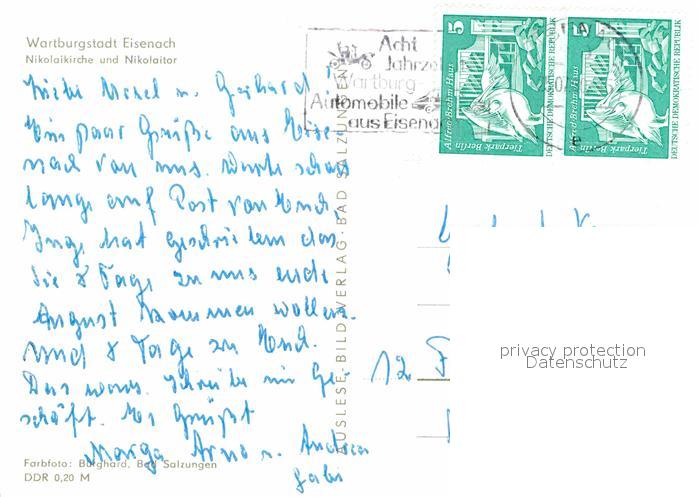 Wartburgstadt Eisenach
Nikolaikirche und Nikolaitor
Acht
Jahrze
Wartburg-
Automobile
aus Eisena
5
5
Alfred-Brehm-Haus
Tierpark Berlin
DEUTSCHE DEMOKRATISCHE REPUBLIK
Alfred-Brehm-Haus
Tierpark Berlin
DEUTSCHE DEMOKRATISCHE REPUBLIK
Liebe u. Gerhard!
Ein paar Grüße aus Eise-
nach von uns. Warte schon
lange auf Post von Euch,
Inge hat geschrieben das
Sie 8 Tage zu uns ende
August kommen wollen.
und 8 Tage zu Euch.
Das wars. Schreibe mir Ge-
schäft. Es Grüßt
Marga Arno u. Andrea
Gabi
12 F
AUSLESE-BILD-VERLAG · BAD SALZUNGEN
privacy protection
Datenschutz
Farbfoto: Borghard, Bad Salzungen
DDR 0,20 M